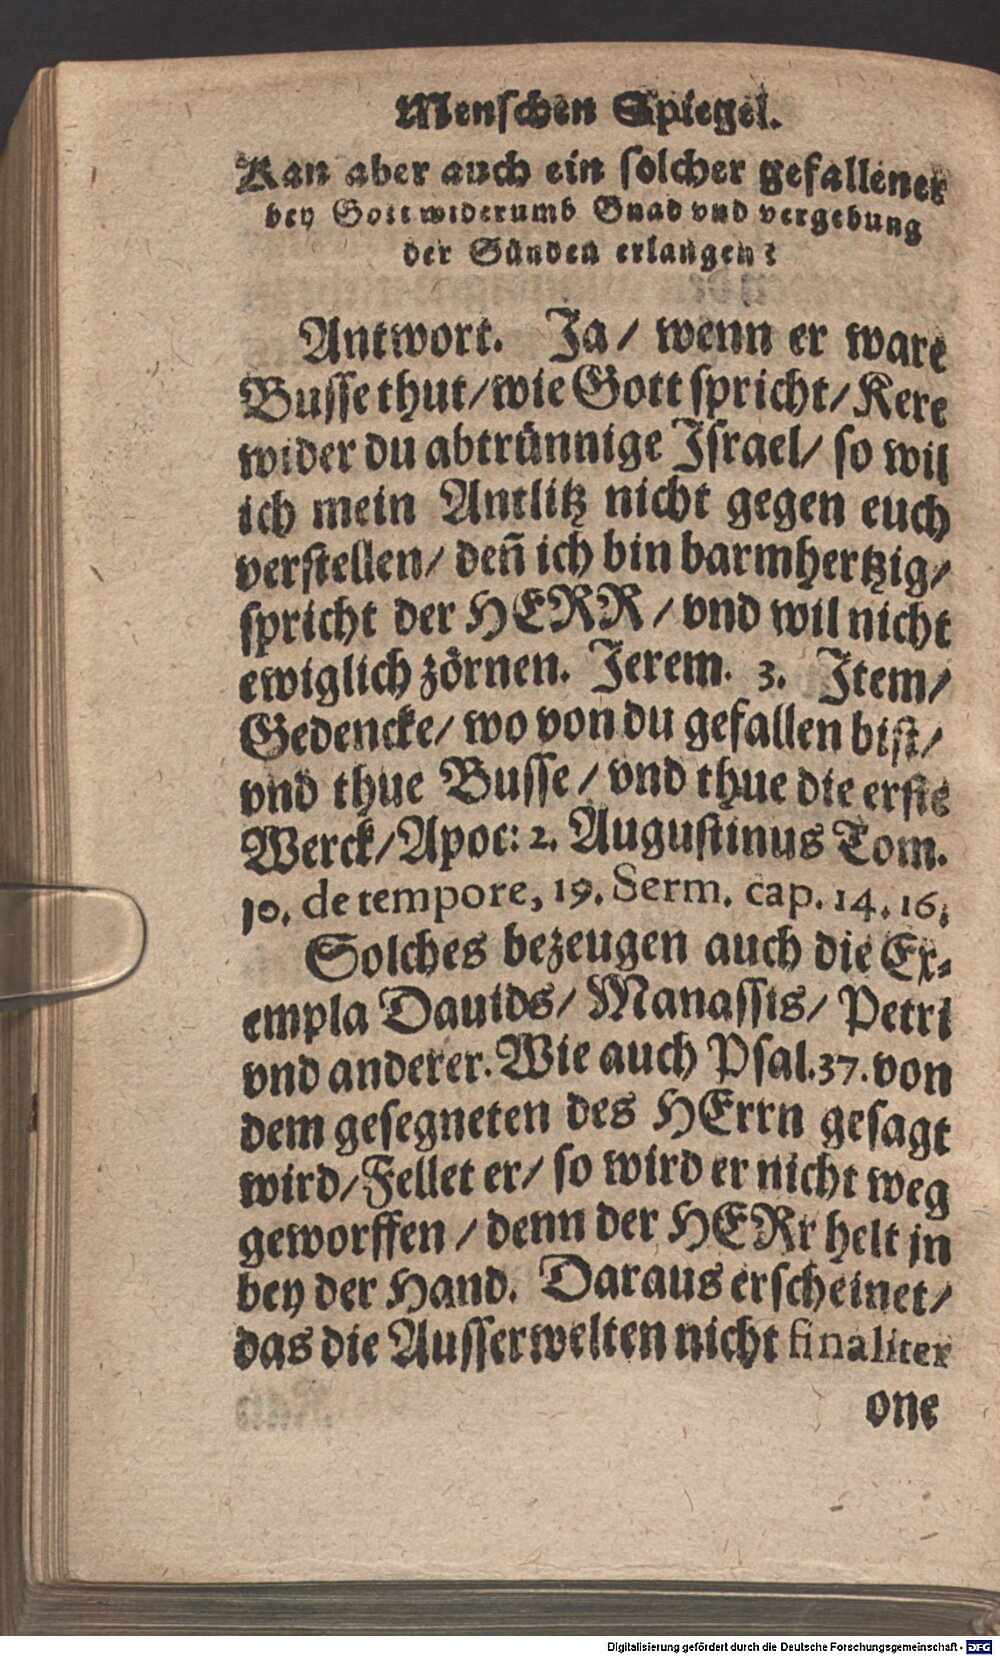 Menschen Spiegel.
Kan aber auch ein solcher gefallener
bey Gott widerumb Gnad vnd vergebung
der Sünden erlangen?
Antwort. Ja/ wenn er ware
Busse thut/ wie Gott spricht/ Kere
wider du abtrünnige Israel/ so wil
ich mein Antlitz nicht gegen euch
verstellen/ deñ ich bin barmhertzig/
spricht der HERR/ vnd wil nicht
ewiglich zörnen. Jerem. 3. Item/
Gedencke/ wo von du gefallen bist/
vnd thue Busse/ vnd thue die erste
Werck/ Apoc: 2. Augustinus Tom.
10. de tempore, 19. Serm. cap. 14. 16.
Solches bezeugen auch die Ex-
empla Dauids/ Manassis/ Petri
vnd anderer. Wie auch Psal. 37. von
dem gesegneten des HErrn gesagt
wird/ Fellet er/ so wird er nicht weg
geworffen/ denn der HERr helt jn
bey der Hand. Daraus erscheinet/
das die Ausserwelten nicht finaliter
one
Digitalisierung gefördert durch die Deutsche Forschungsgemeinschaft - DFG